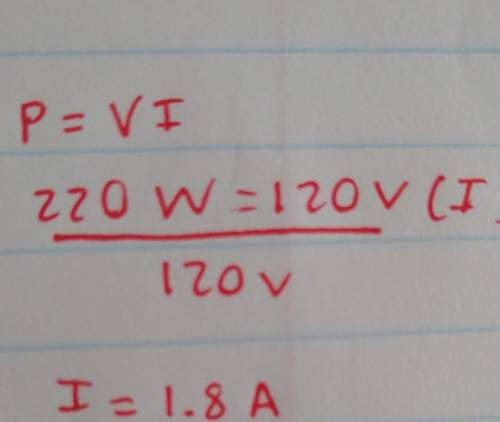 P = VI
220 W = 120 V (I)
120 V
I = 1.8 A